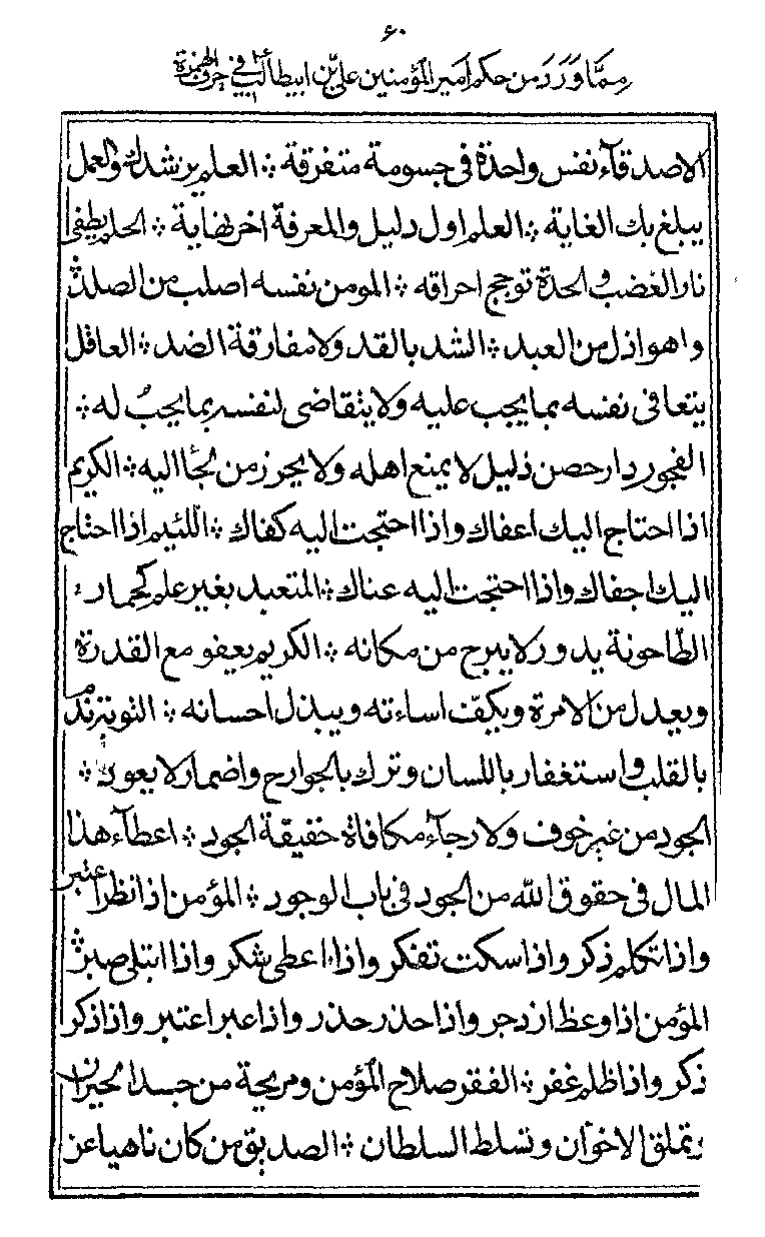 ٦٠
مما ورد من حكم امير المؤمنين علي بن ابيطالب في حرف الهمزة
الاصدقآء نفس واحدة في جسومة متفرقة ∴ العلم يرشدك والعمل
يبلغ بك الغاية ∴ العلم اول دليل والمعرفة اخر نهاية ∴ الحلم يطفى
نار الغضب والحدة توجج احراقه ∴ المومن نفسه اصلب من الصلد
وهو اذل من العبد ∴ الشد بالقد ولا مفارقة الضد ∴ العاقل
يتقاضى نفسه بما يجب عليه ولا يتقاضى لنفسه بما يجب له ∴
الفجور دار حصن ذليل لا يمنع اهله ولا يحرز من لجأ اليه ∴ الكريم
اذا احتاج اليك اعفاك واذا احتجت اليه كفاك ∴ اللئيم اذا احتاج
اليك اجفاك واذا احتجت اليه عناك ∴ المتعبد بغير علم كحمار
الطاحونة يدور ولا يبرح من مكانه ∴ الكريم يعفو مع القدرة
ويعدل من الامرة ويكف اساءته ويبذل احسانه ∴ التوبة ندم
بالقلب واستغفار باللسان وترك بالجوارح واضمار لا يعود ∴
الجود من غير خوف ولا رجآء مكافاة حقيقة الجود ∴ اعطآء هذا
المال في حقوق الله من الجود في باب الوجود ∴ المؤمن اذا نظر اعتبر
واذا تكلم ذكر واذا سكت تفكر واذا اعطى شكر واذا ابتلى صبر ∴
المؤمن اذا وعظ ازدجر واذا حذر حذر واذا عبر اعتبر واذا ذكر
ذكر واذا ظلم غفر ∴ الفقر صلاح المؤمن ومريحة من حسد الجيران
وتملق الاخوان وتسلط السلطان ∴ الصديق من كان ناهيا عن